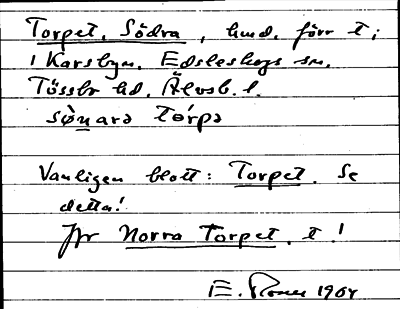 Torpet, Södra, hmd. förr t;
i Karsbyn. Edsleskogs sn.
Tössbo hd. Älvsb. l.
sø̀nara tórpə
Vanligen blott: Torpet. Se
detta!
Jfr Norra Torpet. t!
E. 1904